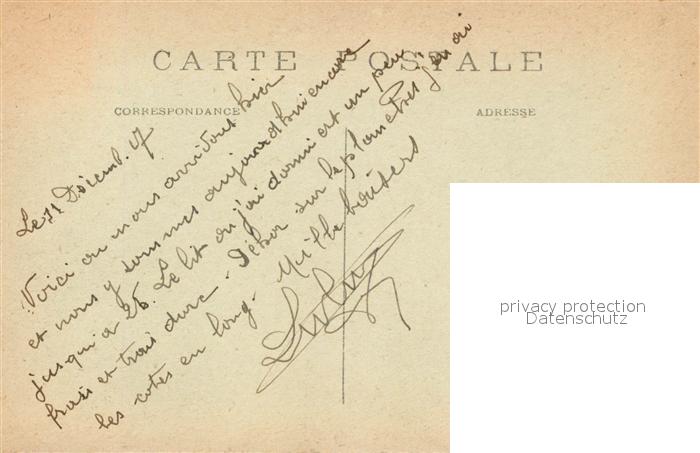 CARTE POSTALE
CORRESPONDANCE
ADRESSE
Le 21 Décemb. 17
Voici ou nous arrivons hier
et nous y sommes aujourd'hui encore
jusqu'a 26. Le lit ou j'ai dormi est un peu
frais et trais dure. Débor sur le planches j'en ai
les cotes en long. Mille baisers
privacy protection
Datenschutz